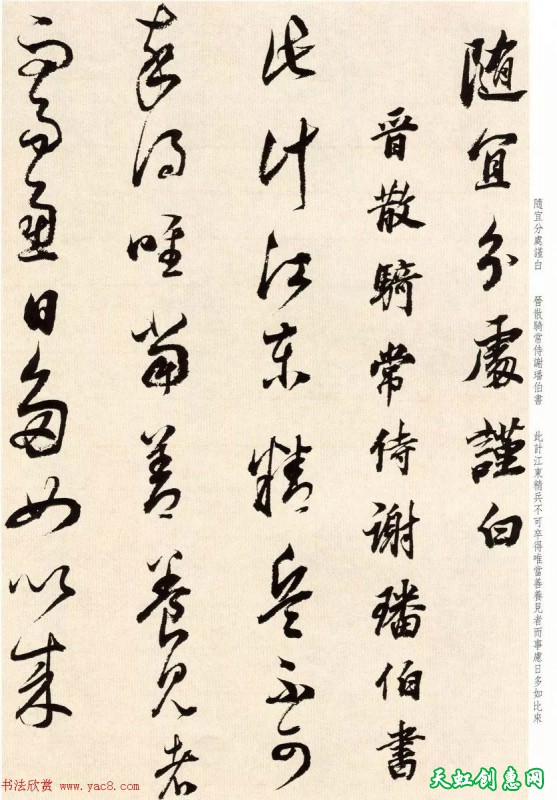 随宜分處謹白
晉散騎常侍謝璠伯書
此计江東精兵不可
卒得唯當善養見者
而事慮日多如比來
隨宜分處謹白　晉散騎常侍謝璠伯書　此計江東精兵不可卒得唯當善養見者而事慮日多如比來
书法欣赏 www.yac8.com
天虹创惠网